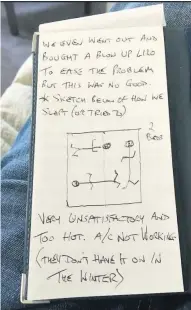 WE EVEN WENT OUT AND
BOUGHT A BLOW UP LILO
TO EASE THE PROBLEM
BUT THIS WAS NO GOOD
* SKETCH BELOW OF HOW WE
SLEPT (OR TRIED TO)
2
BEDS
VERY UNSATISFACTORY AND
TOO HOT. A/C NOT WORKING
(THEY DON'T HAVE IT ON IN
THE WINTER)